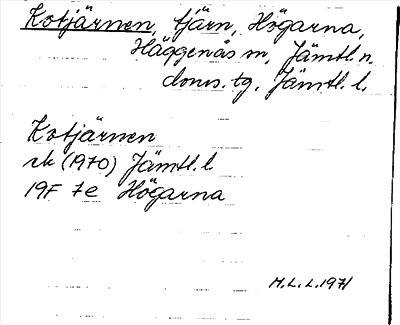 Kotjärnen, tjärn, Högarna,
Häggenås sn, Jämtl. n.
doms. tg, Jämtl. l.
Kotjärnen
ek (1970) Jämtl. l
19F 7e Högarna
M.L.L. 1971